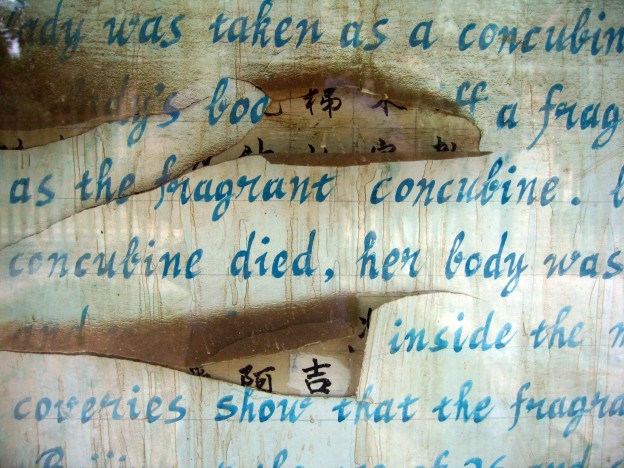 ady was taken as a concubin
dy's bo ff a frag
as the fragrant concubine.
concubine died, her body was
and inside the
阿吉
coveries show that the fragra